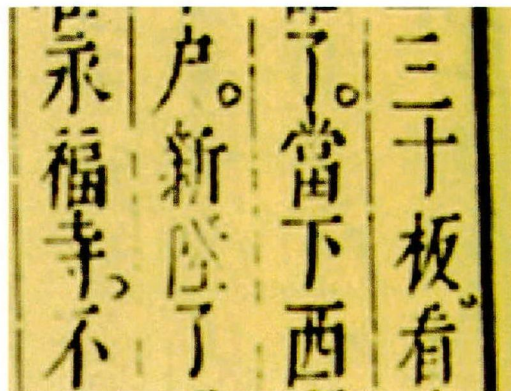 三十板。看
了。當下西
户。新陞了
永福寺、不